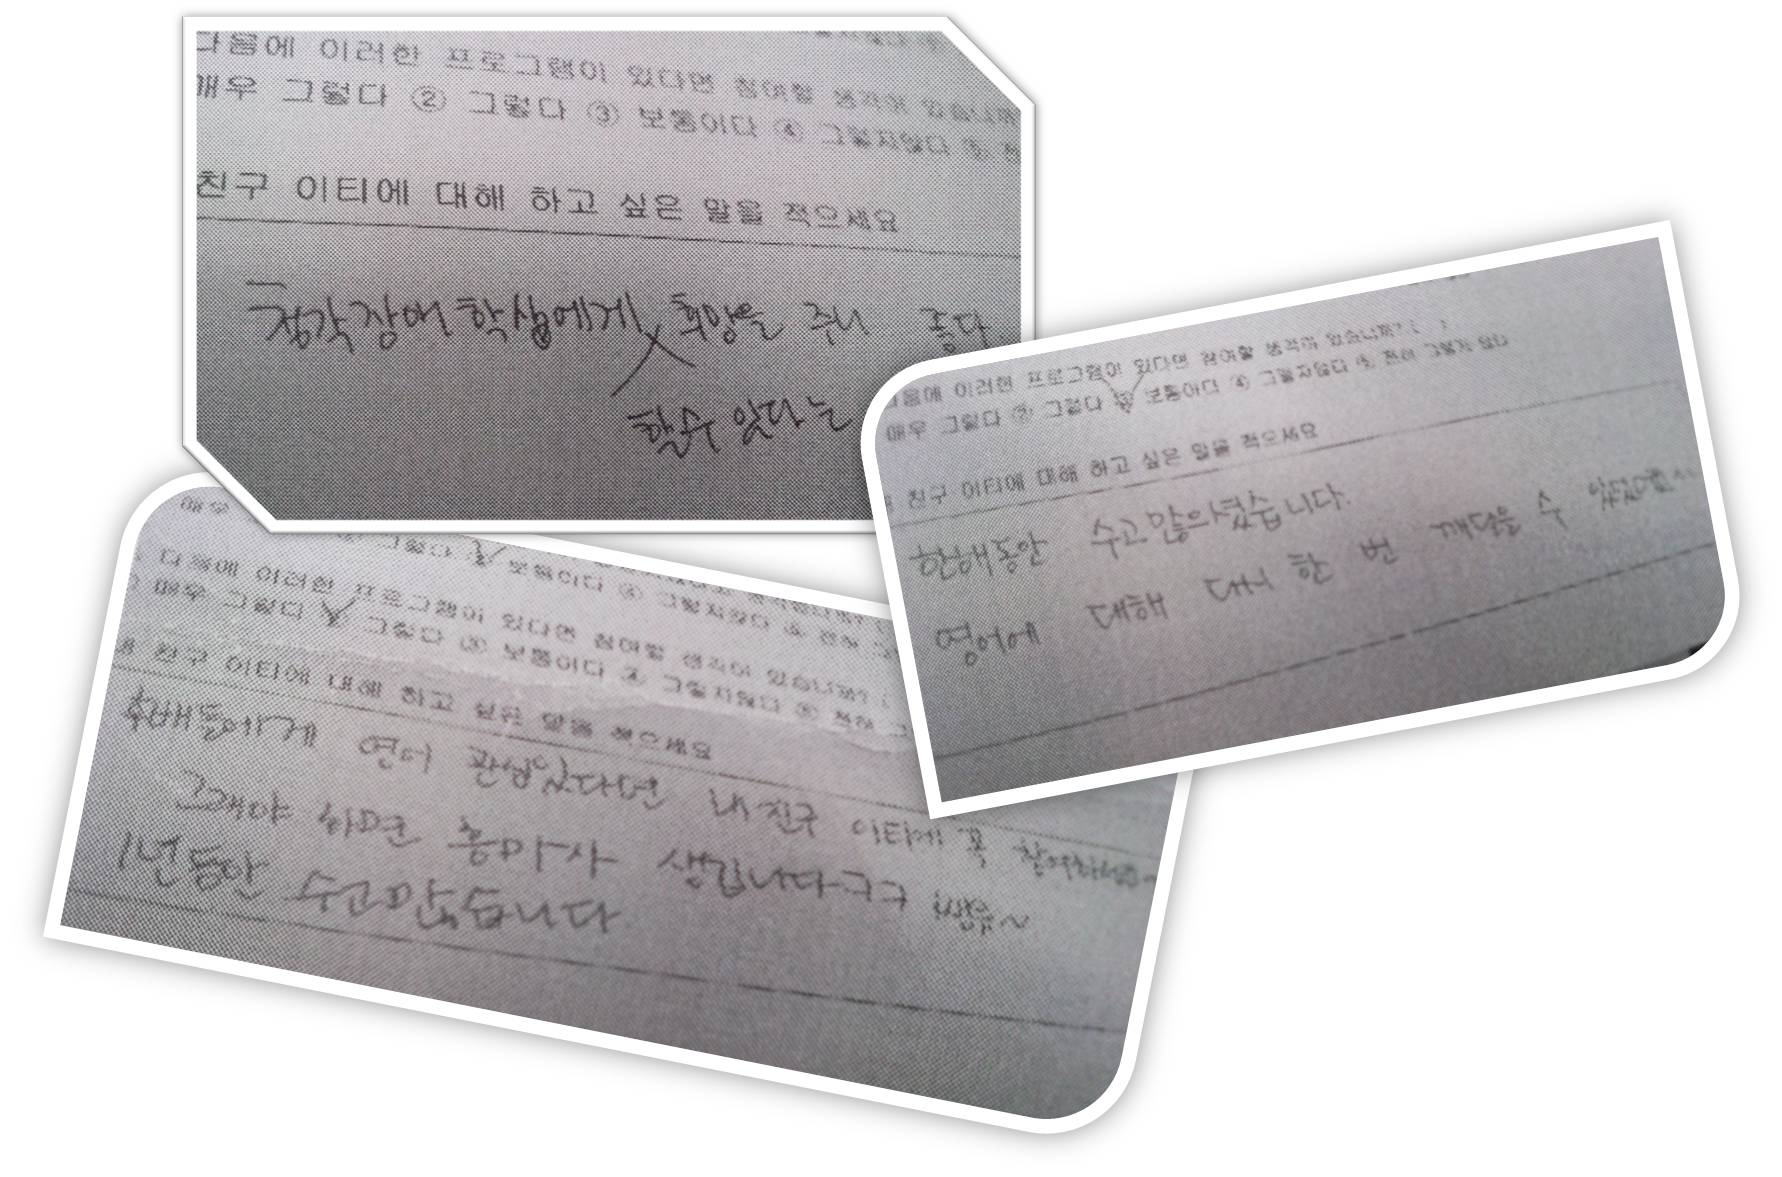 다음에 이러한 프로그램이 있다면 참여할 생각이 있습니까
매우 그렇다 ② 그렇다 ③ 보통이다 ④ 그렇지않다 ⑤ 전
친구 이티에 대해 하고 싶은 말을 적으세요
청각장애 학생에게 희망을 주니 좋다
할수 있다는
다음에 이러한 프로그램이 있다면 참여할 생각이 있습니까? ( )
매우 그렇다 ② 그렇다 ③ 보통이다 ④ 그렇지않다 ⑤ 전혀 그렇지 않다
친구 이티에 대해 하고 싶은 말을 적으세요
한해동안 수고많으셨습니다.
영어에 대해 다시 한 번 깨달을 수
매우 그렇다 보통이다 ④ 그렇지않다 ⑤ 전혀
다음에 이러한 프로그램이 있다면 참여할 생각이 있습니까? (
매우 그렇다 그렇다 ③ 보통이다 ④ 그렇지않다 ⑤ 전혀 그
8 친구 이티에 대해 하고 싶은 말을 적으세요
후배들에게 영어 관심있다면 내친구 이티에 꼭
그래야 하면 흥미가 생깁니다ㅋㅋㅋ
1년동안 수고많습니다